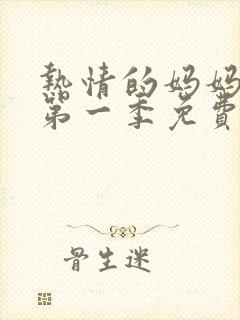 熱情的妈妈
第一季免費
骨生迷